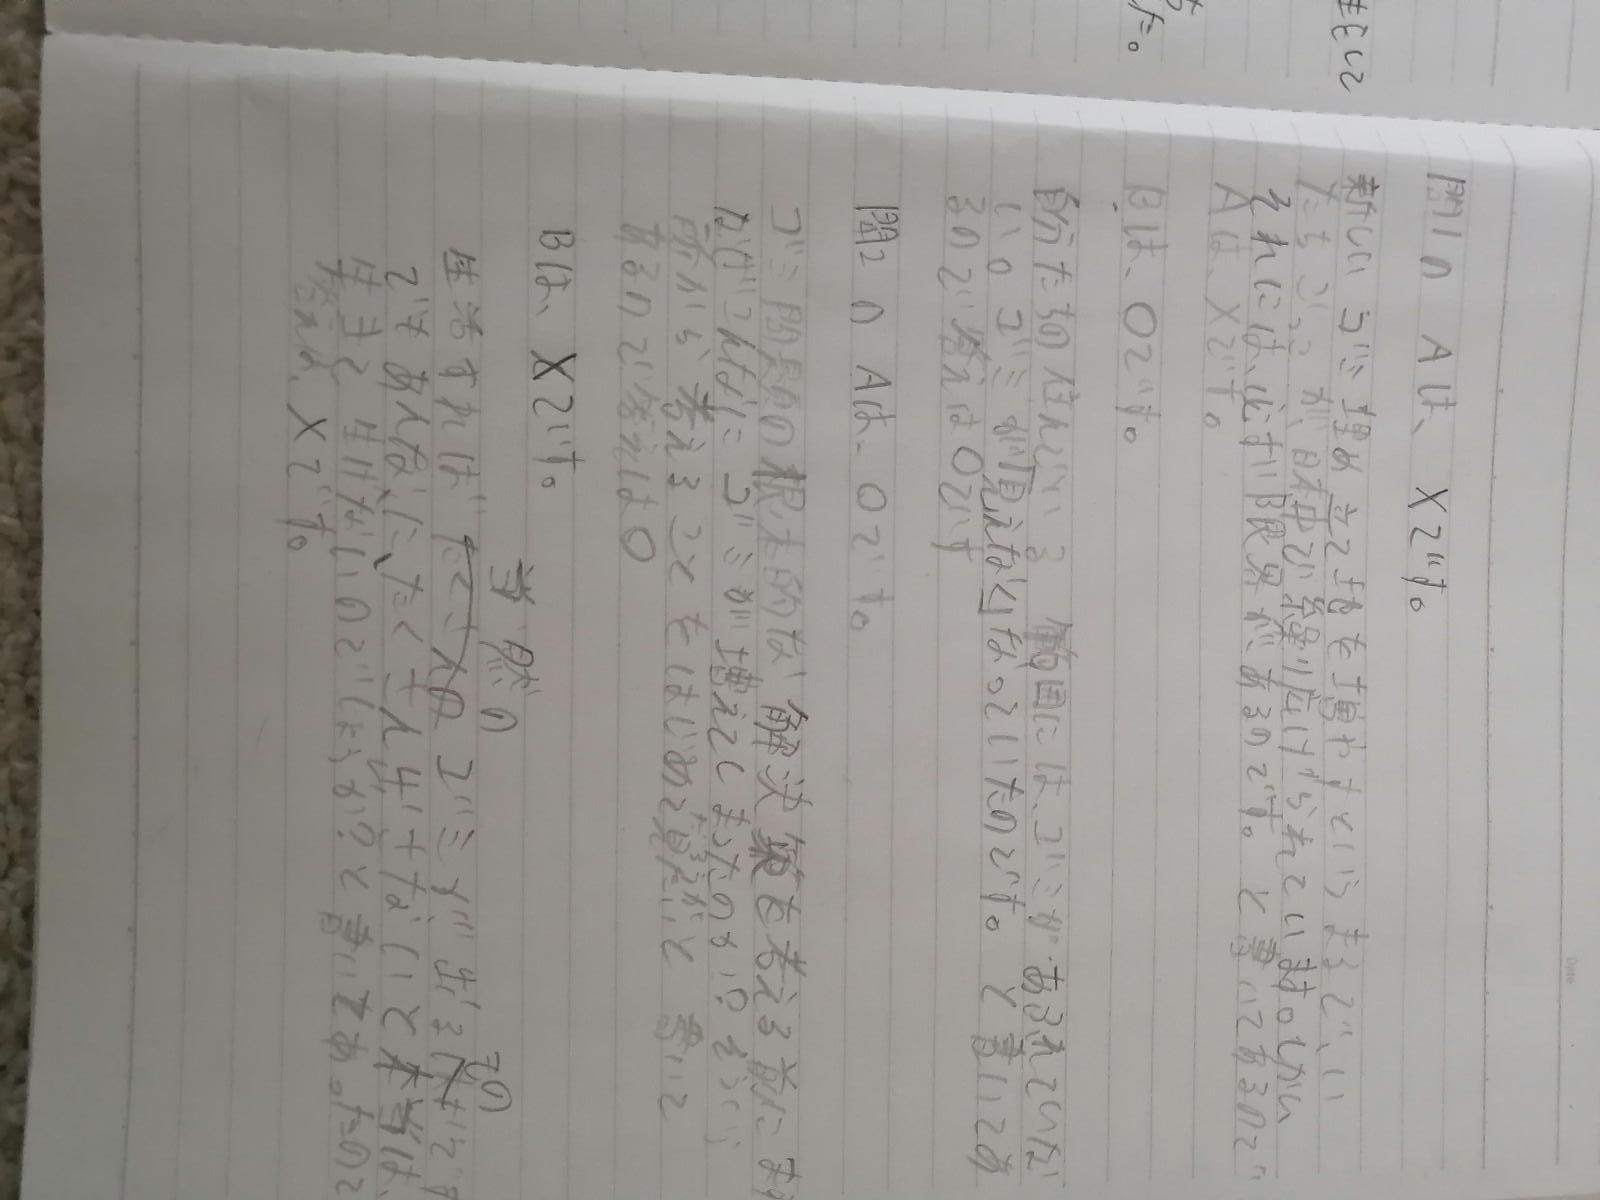 生むいて
た。
問1の Aは、×です。
新しいゴミ埋め立て地を増やすというまるでいい
たちごっこが日本中で繰り広げられています。しかし
それには、必ず限界があるのです。と書いてあるので
Aは、×です。
Bは、○です。
自分たちの住んでいる範囲には、ゴミがあふれていな
い。ゴミが見えなくなっていたのです。と書いてあ
るので答えは○です
問2の Aは、○です。
ゴミ問題の根本的な解決策を考える前に
なぜこんなにゴミが増えてしまったのか?そういう
所から考えることをはじめて見たいと書いて
あるので答えは○
Bは、×です。
当然の
生活すればたくさんのゴミが出る
もの
でもあんなにたくさん出すなんて本当は、
生まと 出せないのでしょうか?と書いてあったので
答えは、×です。
Date